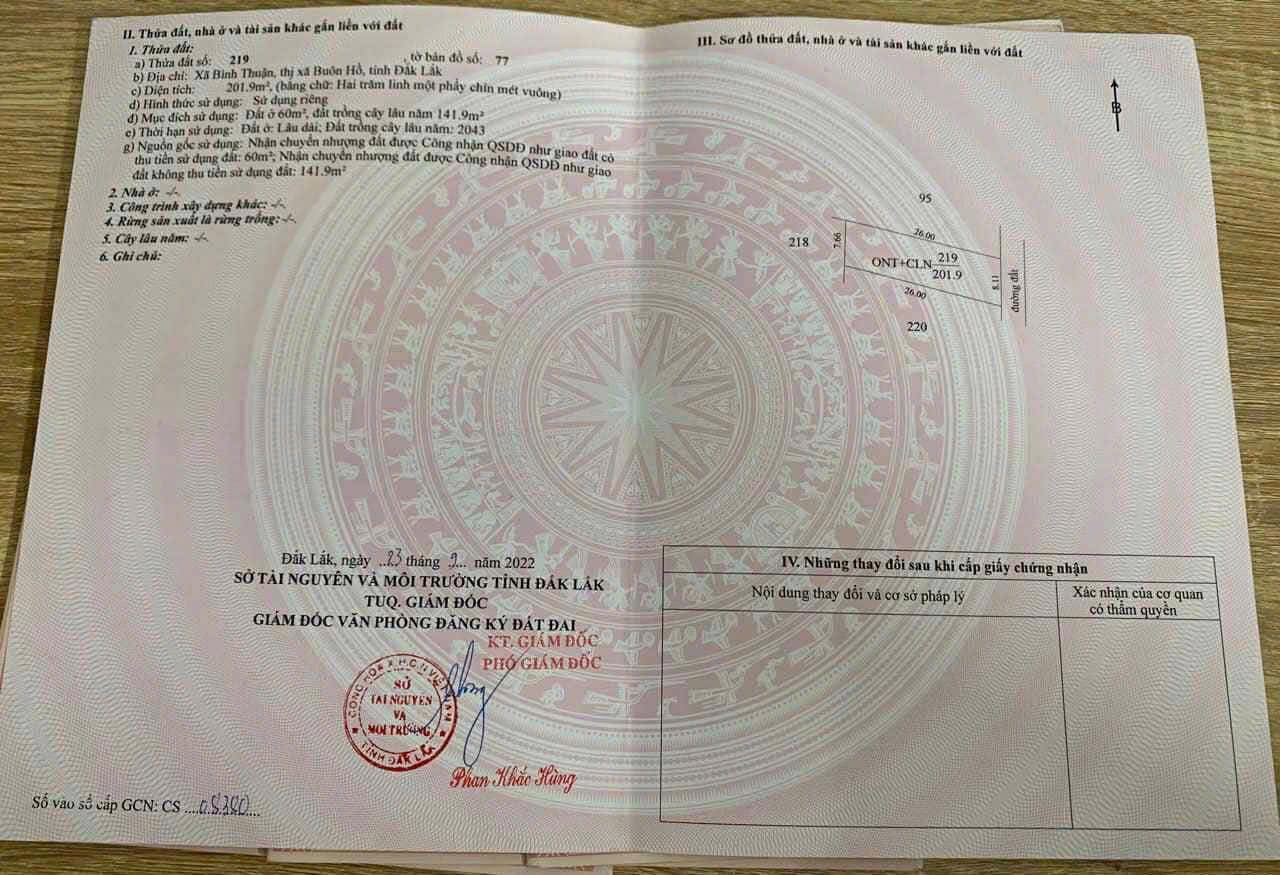 II. Thửa đất, nhà ở và tài sản khác gắn liền với đất
1. Thửa đất:
a) Thửa đất số: 219 , tờ bản đồ số: 77
b) Địa chỉ: Xã Bình Thuận, thị xã Buôn Hồ, tỉnh Đắk Lắk
c) Diện tích: 201.9m², (bằng chữ: Hai trăm linh một phẩy chín mét vuông)
d) Hình thức sử dụng: Sử dụng riêng
đ) Mục đích sử dụng: Đất ở 60m², đất trồng cây lâu năm 141.9m²
e) Thời hạn sử dụng: Đất ở: Lâu dài; Đất trồng cây lâu năm: 2043
g) Nguồn gốc sử dụng: Nhận chuyển nhượng đất được Công nhận QSDĐ như giao đất có
thu tiền sử dụng đất: 60m²; Nhận chuyển nhượng đất được Công nhận QSDĐ như giao
đất không thu tiền sử dụng đất: 141.9m²
2. Nhà ở: -/-
3. Công trình xây dựng khác: -/-
4. Rừng sản xuất là rừng trồng: -/-
5. Cây lâu năm: -/-
6. Ghi chú:
Đắk Lắk, ngày ..23 tháng ..2... năm 2022
SỞ TÀI NGUYÊN VÀ MÔI TRƯỜNG TỈNH ĐẮK LẮK
TUQ. GIÁM ĐỐC
GIÁM ĐỐC VĂN PHÒNG ĐĂNG KÝ ĐẤT ĐAI
KT. GIÁM ĐỐC
PHÓ GIÁM ĐỐC
CỘNG HÒA X.H.C.N VIỆT NAM
SỞ
TÀI NGUYÊN
VÀ
MÔI TRƯỜNG
TỈNH ĐẮK LẮK
Phan Khắc Hùng
Số vào sổ cấp GCN: CS ....08380....
III. Sơ đồ thửa đất, nhà ở và tài sản khác gắn liền với đất
B
95
218
7.66
26.00
ONT+CLN 219
201.9
8.11
đường đất
26.00
220
IV. Những thay đổi sau khi cấp giấy chứng nhận
Nội dung thay đổi và cơ sở pháp lý
Xác nhận của cơ quan
có thẩm quyền